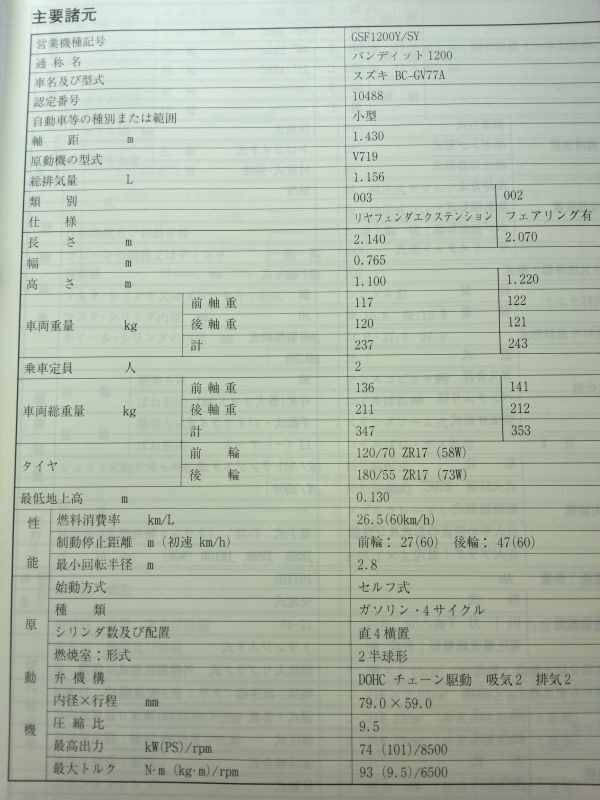 主要諸元
営業機種記号 GSF1200Y/SY
通称名 バンディット1200
車名及び型式 スズキ BC-GV77A
認定番号 10488
自動車等の種別または範囲 小型
軸距 m 1.430
原動機の型式 V719
総排気量 L 1.156
類別 003 002
仕様 リヤフェンダエクステンション フェアリング有
長さ m 2.140 2.070
幅 m 0.765
高さ m 1.100 1.220
車両重量 kg 前軸重 117 122
後軸重 120 121
計 237 243
乗車定員 人 2
車両総重量 kg 前軸重 136 141
後軸重 211 212
計 347 353
タイヤ 前輪 120/70 ZR17 (58W)
後輪 180/55 ZR17 (73W)
最低地上高 m 0.130
性能 燃料消費率 km/L 26.5(60km/h)
制動停止距離 m (初速 km/h) 前輪：27(60) 後輪：47(60)
最小回転半径 m 2.8
原動機 始動方式 セルフ式
種類 ガソリン・4サイクル
シリンダ数及び配置 直4横置
燃焼室：形式 2半球形
弁機構 DOHC チェーン駆動 吸気2 排気2
内径×行程 mm 79.0×59.0
圧縮比 9.5
最高出力 kW(PS)/rpm 74 (101)/8500
最大トルク N·m (kg·m)/rpm 93 (9.5)/6500